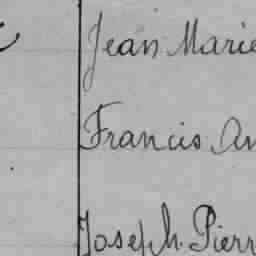 Jean Marie
Francis An
Joseph Pierr